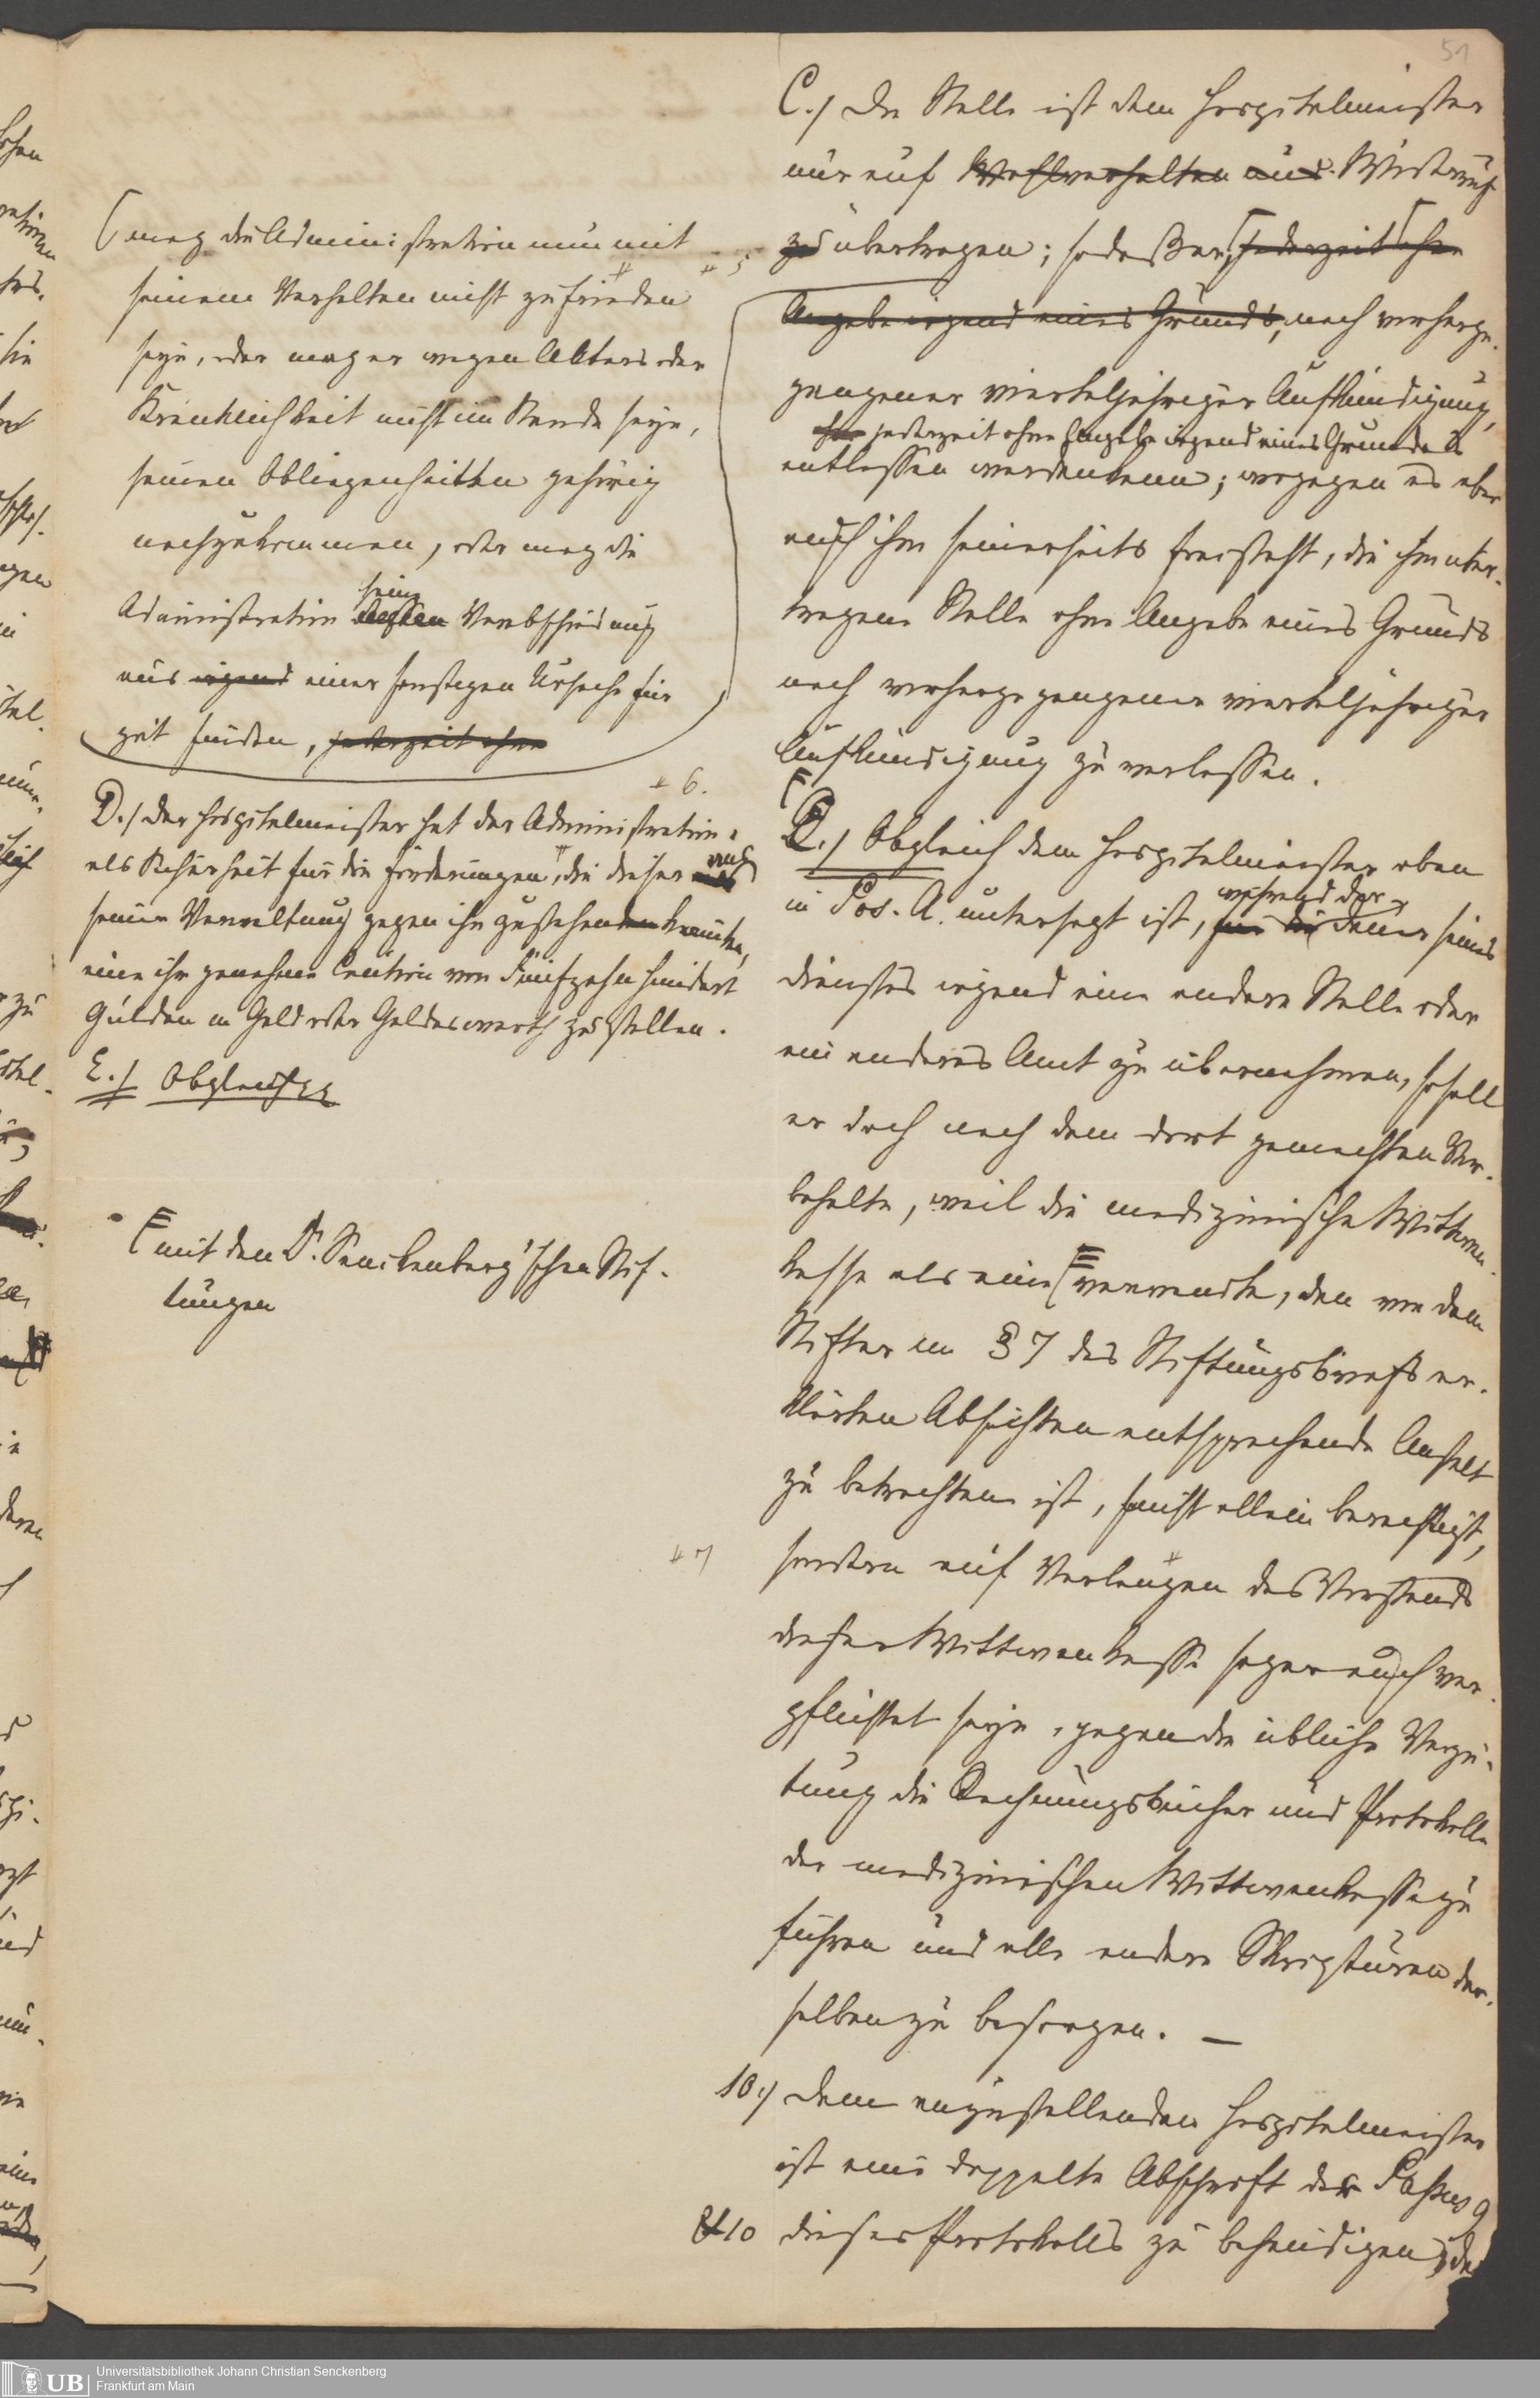 51
C.) Die Stelle ist dem Hospitalmeister
nur auf Wohlverhalten und Widerruf
zu übertragen; so daß er, jederzeit ohne
Angabe irgend eines Grunds, nach vorherge-
gangener vierteljähriger Aufkündigung,
jederzeit ohne Angabe irgend eines Grundes
entlassen werden kann; wogegen es aber
auch ihm seinerseits freisteht, die ihm über-
tragene Stelle ohne Angabe eines Grunds
nach vorhergegangener vierteljähriger
Aufkündigung zu verlassen.
[mag die Administration nun mit
seinem Verhalten nicht zufrieden
seyn, oder mag er wegen Alters oder
Kränklichkeit nicht im Stande seyn,
seinen Obliegenheiten gehörig
nachzukommen, oder mag die
seine
Administration dessen Verabschiedung
aus irgend einer sonstigen Ursache für
gut finden, jederzeit ohne
+ 5
+ 6.
D.) Der Hospitalmeister hat der Administration,
als Sicherheit für die Forderungen, die dieser aus
seiner Verwaltung gegen ihn zustehen könnten,
eine ihr genehme Caution von Fünfzehn hundert
Gulden in Geld oder Geldeswerth zu stellen.
E.) Obgleich
D.) Obgleich dem Hospitalmeister oben
während der
in Pos. A. untersagt ist, für die Dauer seines
Dienstes irgend eine andere Stelle oder
ein anderes Amt zu übernehmen, so soll
er doch nach dem dort gemachten Vor-
behalte, weil die medizinische Wittwen-
kasse als eine [verwandte, den von dem
Stifter in § 7 des Stiftungsbriefs er-
klärten Absichten entsprechende Anstalt
zu betrachten ist, nicht allein berechtigt,
sondern auf Verlangen des Vorstands
dieser Wittwenkasse sogar auch ver-
pflichtet seyn, gegen die übliche Vergü-
tung die Rechnungsbücher und Protokolle
der medizinischen Wittwenkasse zu
führen und alle andere Skripturen der-
selben zu besorgen. —
[mit den Dr. Senckenberg'schen Stif-
tungen
+ 7
10.) Dem anzustellenden Hospitalmeister
ist eine doppelte Abschrift der Passus 9
& 10 dieses Protokolls zu behändigen,
UB
Universitätsbibliothek Johann Christian Senckenberg
Frankfurt am Main